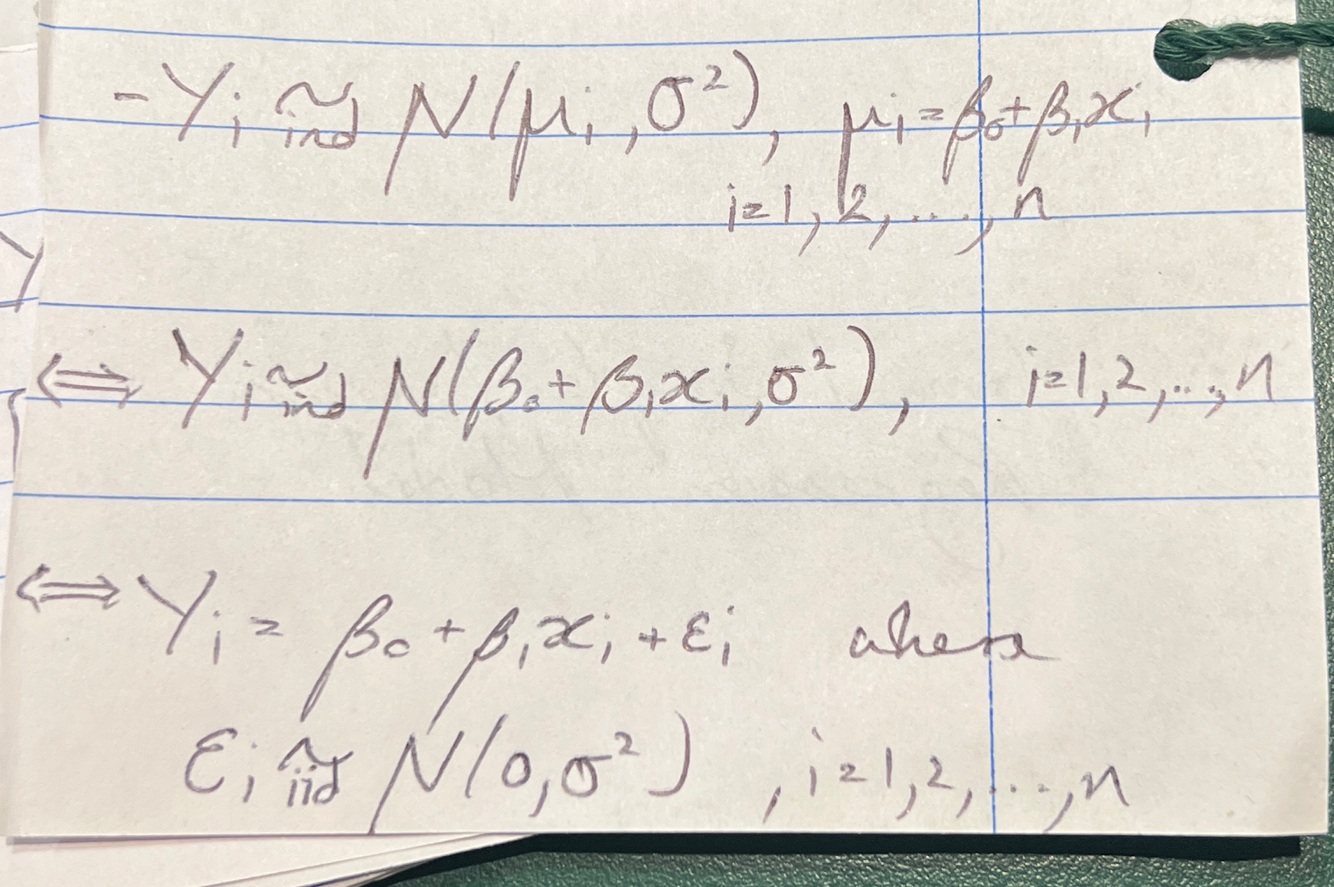 - Yᵢ ~ind N(μᵢ, σ²), μᵢ = β₀ + β₁xᵢ
i=1, 2, ..., n
⇔ Yᵢ ~ind N(β₀ + β₁xᵢ, σ²), i=1,2,..,n
⇔ Yᵢ = β₀ + β₁xᵢ + εᵢ where
εᵢ ~iid N(0,σ²) , i=1,2,...,n